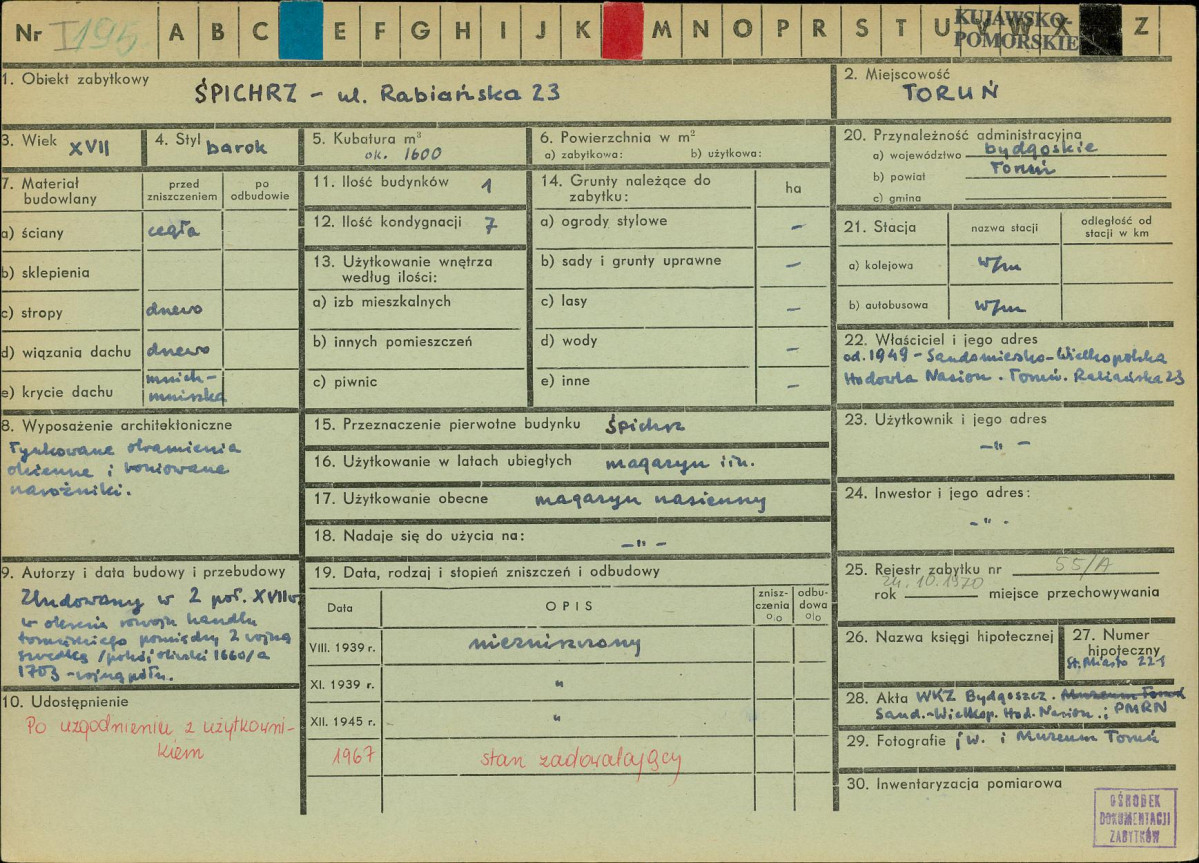 Nr I 195. A B C E F G H I J K M N O P R S T U V W X Z
KUJAWSKO-
POMORSKIE
1. Obiekt zabytkowy
ŚPICHRZ - ul. Rabiańska 23
2. Miejscowość
TORUŃ
3. Wiek XVII
4. Styl barok
5. Kubatura m³
ok. 1600
6. Powierzchnia w m²
a) zabytkowa: b) użytkowa:
20. Przynależność administracyjna
a) województwo bydgoskie
b) powiat Toruń
c) gmina
7. Materiał budowlany
przed zniszczeniem
po odbudowie
a) ściany cegła
b) sklepienia
c) stropy drewo
d) wiązania dachu drewo
e) krycie dachu mnich-
mniszka
11. Ilość budynków 1
12. Ilość kondygnacji 7
13. Użytkowanie wnętrza
według ilości:
a) izb mieszkalnych
b) innych pomieszczeń
c) piwnic
14. Grunty należące do
zabytku:
ha
a) ogrody stylowe -
b) sady i grunty uprawne -
c) lasy -
d) wody -
e) inne -
21. Stacja
nazwa stacji
odległość od
stacji w km
a) kolejowa w/m
b) autobusowa w/m
22. Właściciel i jego adres
od. 1949 - Sandomiesko-Wielkopolska
Hodowla Nasion. Toruń. Rabiańska 23
8. Wyposażenie architektoniczne
Tynkowane obramienia
okienne i boniowane
narożniki.
15. Przeznaczenie pierwotne budynku Śpichrz
16. Użytkowanie w latach ubiegłych magazyn i in.
17. Użytkowanie obecne magazyn nasienny
18. Nadaje się do użycia na: -"-
23. Użytkownik i jego adres
-"-
24. Inwestor i jego adres:
-"-
9. Autorzy i data budowy i przebudowy
Zbudowany w 2 poł. XVII w.
w okresie rozwoju handlu
toruńskiego pomiędzy 2 wojną
szwedką /pokój oliwski 1660/a
1703 - wojną półn.
19. Data, rodzaj i stopień zniszczeń i odbudowy
Data
OPIS
znisz-
czenia
o/o
odbu-
dowa
o/o
VIII. 1939 r. niezniszczony
XI. 1939 r. "
XII. 1945 r. "
1967 stan zadowalający
25. Rejestr zabytku nr 55/A
24. 10. 1970
rok miejsce przechowywania
26. Nazwa księgi hipotecznej
27. Numer
hipoteczny
St. Miasto 221
10. Udostępnienie
Po uzgodnieniu z użytkowni-
kiem
28. Akta WKZ Bydgoszcz. Muzeum Toruń
Sand.-Wielkop. Hod. Nasion. i PMRN
29. Fotografie j w. i Muzeum Toruń
30. Inwentaryzacja pomiarowa
OŚRODEK
DOKUMENTACJI
ZABYTKÓW